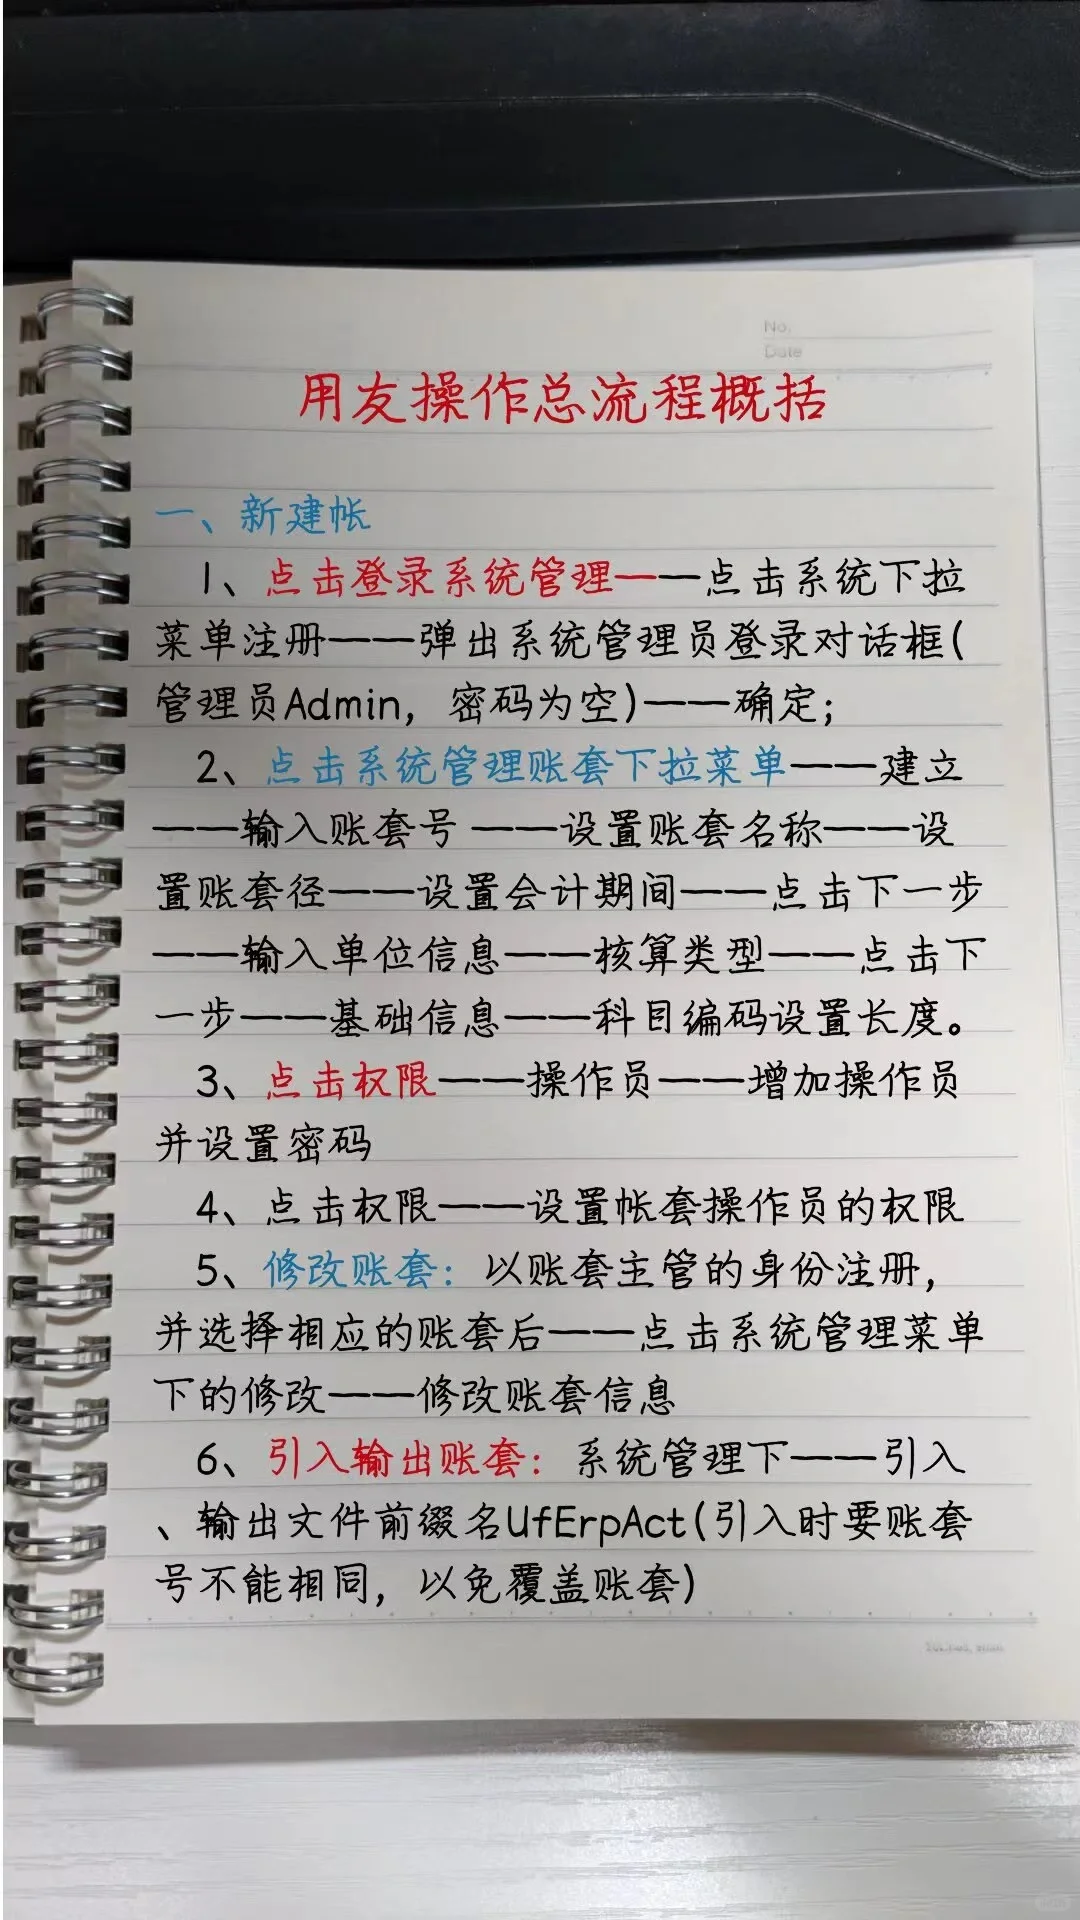 No.
Date
用友操作总流程概括
一、新建帐
1、点击登录系统管理——点击系统下拉
菜单注册——弹出系统管理员登录对话框(
管理员Admin，密码为空)——确定；
2、点击系统管理账套下拉菜单——建立
——输入账套号 ——设置账套名称——设
置账套径——设置会计期间——点击下一步
——输入单位信息——核算类型——点击下
一步——基础信息——科目编码设置长度。
3、点击权限——操作员——增加操作员
并设置密码
4、点击权限——设置帐套操作员的权限
5、修改账套：以账套主管的身份注册，
并选择相应的账套后——点击系统管理菜单
下的修改——修改账套信息
6、引入输出账套：系统管理下——引入
、输出文件前缀名UfErpAct(引入时要账套
号不能相同，以免覆盖账套)